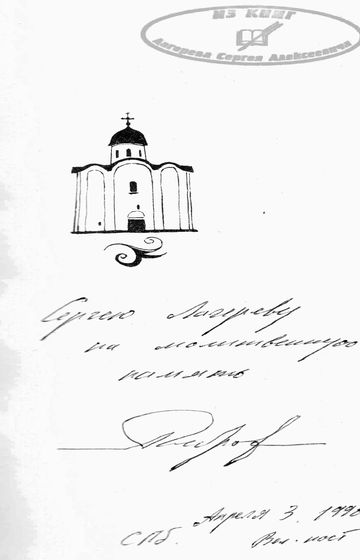 ИЗ КНИГ
Лагерева Сергея Алексеевича
Сергею Лагереву
на молитвенную
память
Апреля 3. 1990
СПб. Вел. пост